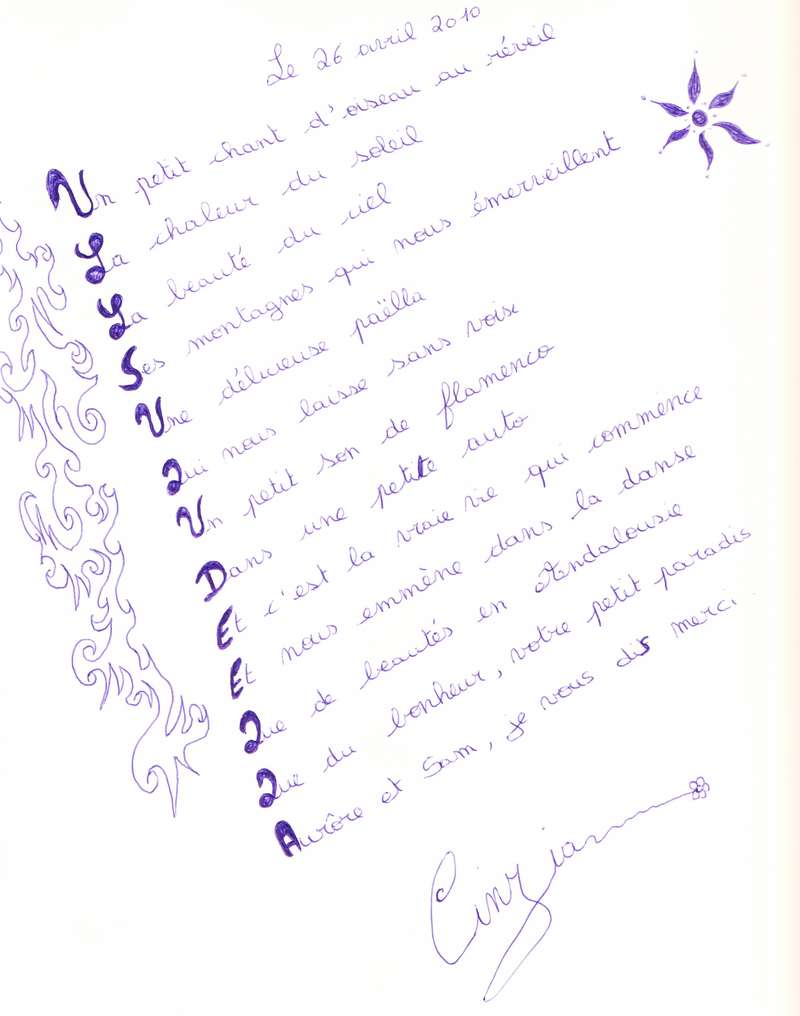 Le 26 avril 2010
Un petit chant d'oiseau au réveil
La chaleur du soleil
La beauté du ciel
Ses montagnes qui nous émerveillent
Une délicieuse paëlla
Qui nous laisse sans voix
Un petit son de flamenco
Dans une petite auto
Et c'est la vraie vie qui commence
Et nous emmène dans la danse
Que de beautés en Andalousie
Que du bonheur, votre petit paradis
Aurôre et Sam, je vous dis merci
Cinzia